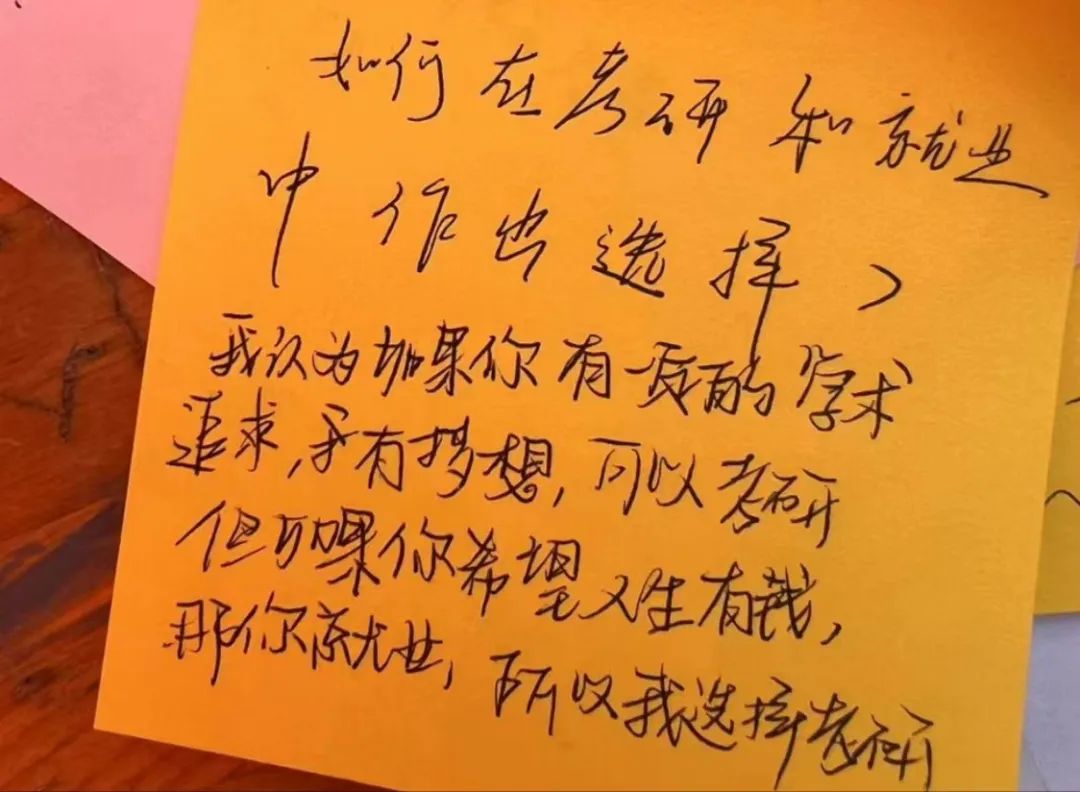 如何在考研和就业
中作出选择
我认为如果你有一定的学术
追求,于有梦想,可以考研
但如果你希望人生有钱,
那你就业,所以我选择考研